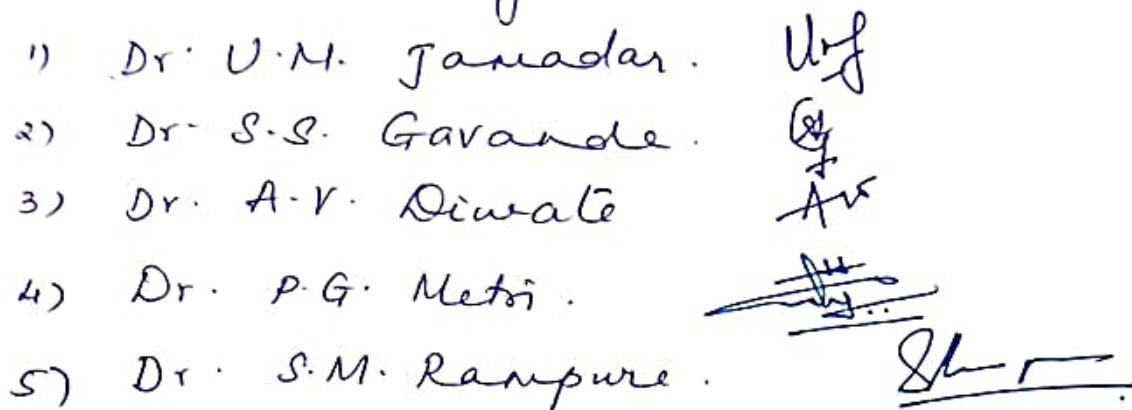 1) Dr. U.M. Jamadar.
2) Dr. S.S. Gavande.
3) Dr. A.V. Diwate
4) Dr. P.G. Metri.
5) Dr. S.M. Rampure.